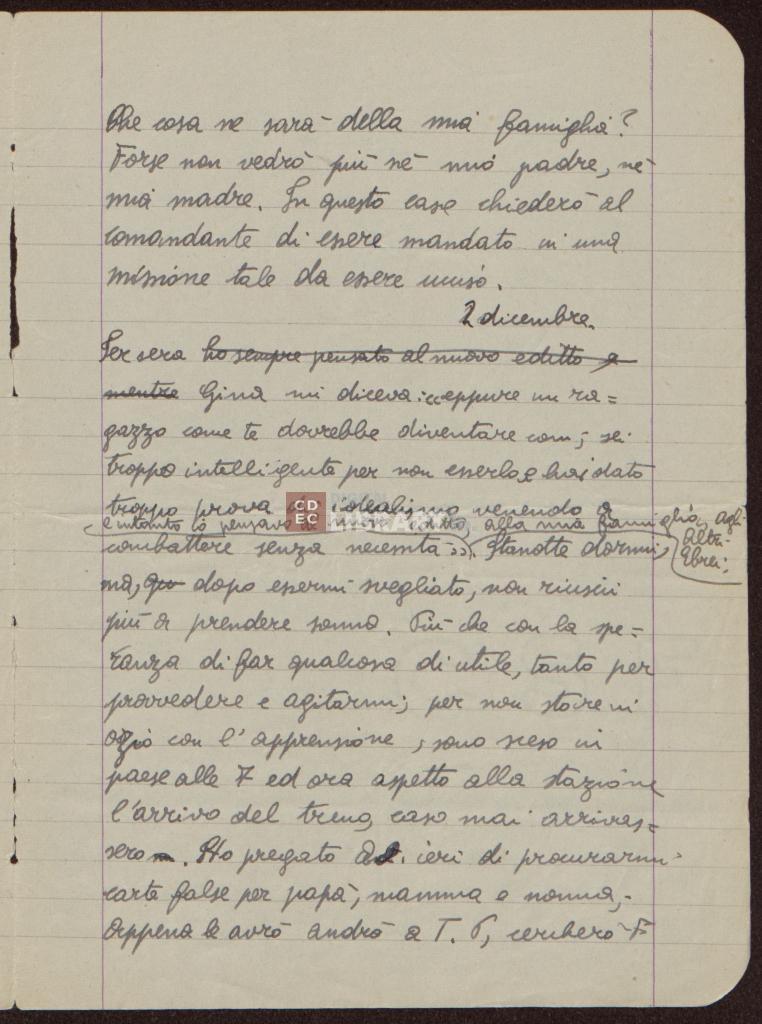 Che cosa ne sarà della mia famiglia?
Forse non vedrò più nè mio padre, nè
mia madre. In questo caso chiederò al
comandante di essere mandato in una
missione tale da essere ucciso.
2 dicembre.
Ier sera ho sempre pensato al nuovo editto e
mentre Gina mi diceva: «eppure un ra=
gazzo come te dovrebbe diventare com; sei
troppo intelligente per non esserlo, e hai dato
troppo prova di idealismo venendo a
e intanto io pensavo al nuovo editto, alla mia famiglia, agli
altri
Ebrei;
combattere senza necessità». Stanotte dormii,
ma, dopo essermi svegliato, non riuscii
più a prendere sonno. Più che con la spe=
ranza di far qualcosa di utile, tanto per
provvedere e agitarmi; per non stare in
ozio con l'apprensione, sono sceso in
paese alle 7 ed ora aspetto alla stazione
l'arrivo del treno, caso mai arrivas=
sero. Ho pregato ieri di procurarmi
carte false per papà, mamma e nonna,
appena le avrò andrò a T. P, cercherò F
CD
EC
DIGITAL
LIBRARY